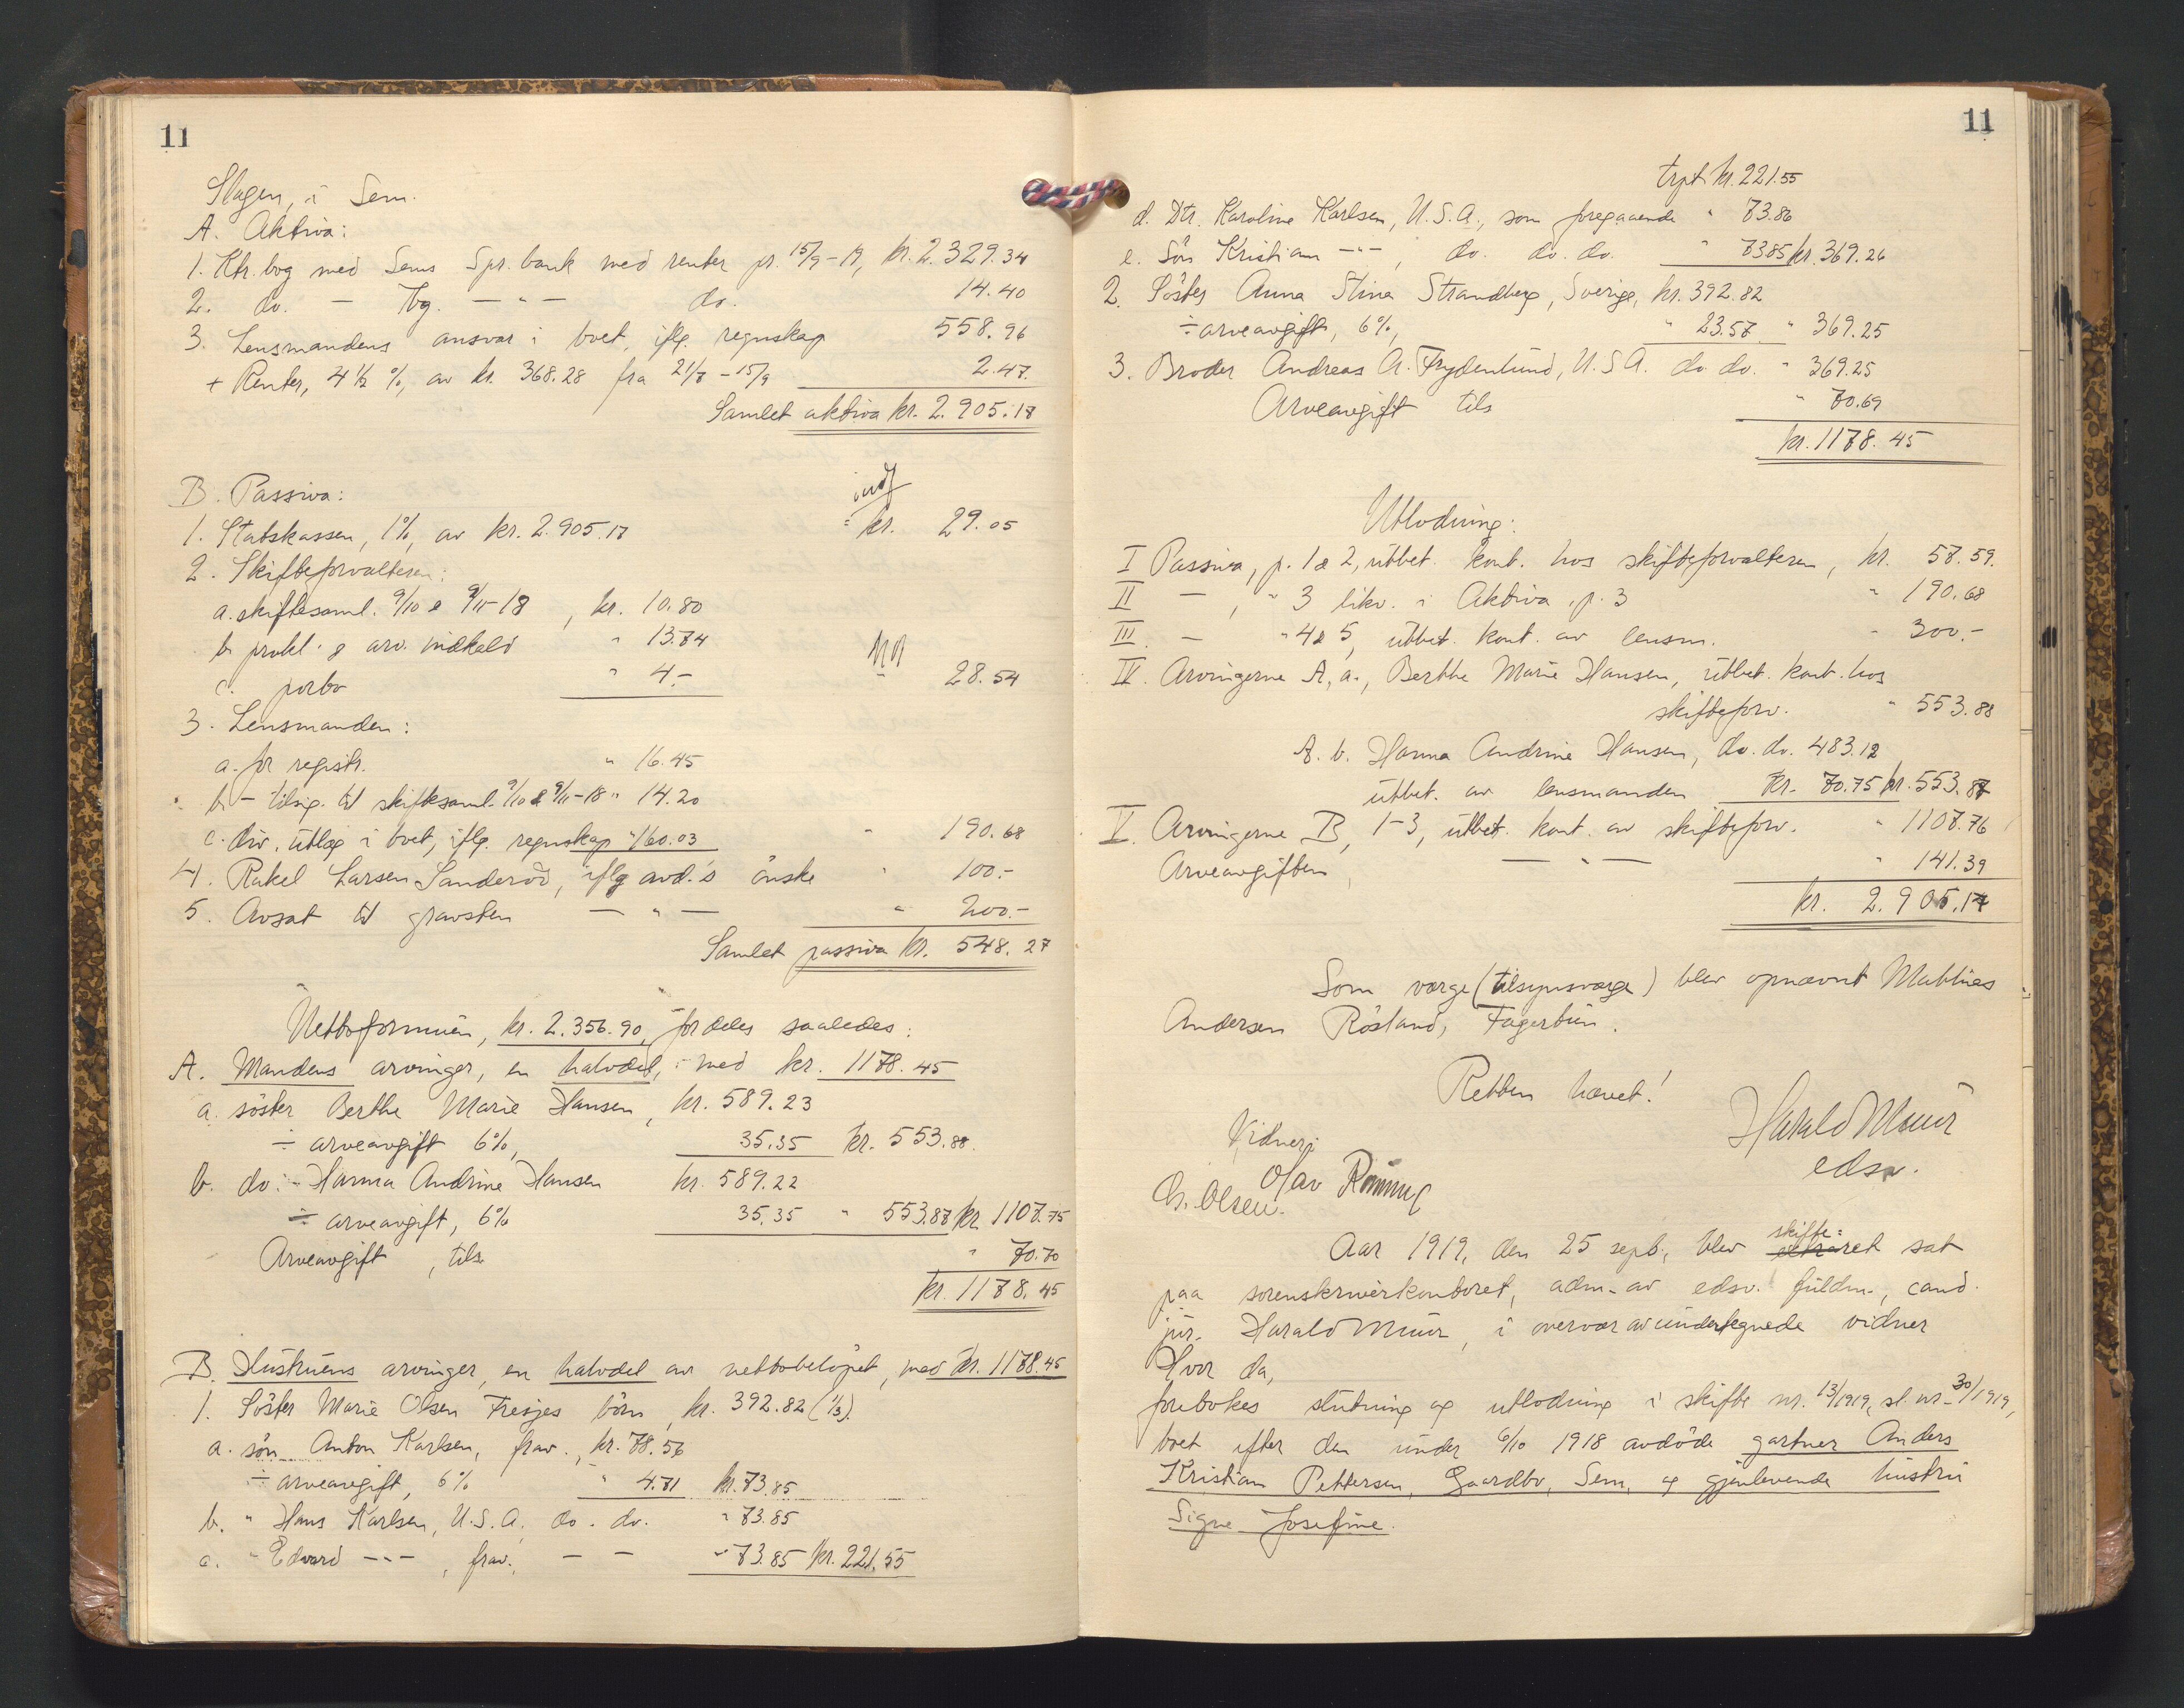 11
Slagen, i Sem.
A. Aktiva:
1. Ktr. bog med Sems Spr. bank med renter pr. 15/9-19, kr. 2.329.34
2. do. - Tbg. - " - do. 14.40
3. Lensmandens ansvar i boet, iflg. regnskap 558.96
+ Renter, 4 1/2 %, av kr. 368.28 fra 21/7 - 15/9 2.47.
Samlet aktiva kr. 2.905.17
B. Passiva:
1. Statskassen, 1%, av kr. 2.905.17 kr. 29.05
2. Skifteforvalteren:
a. skiftesaml. 9/10 & 9/11-18, kr. 10.80
b. prokl. & arv. indkald " 13.74
c. porto " 4.- 28.54
3. Lensmanden:
a. for registr. " 16.45
b. - tilsig. til skiftesaml. 9/10 & 9/11-18 " 14.20
c. div. utlæg i boet, iflg. regnskap " 160.03 " 190.68
4. Rakel Larsen Sanderød, iflg avd.'s önske " 100.-
5. Avsat til gravsten - " - " 200.-
Samlet passiva kr. 548.27
Nettoformuen, kr. 2.356.90, fordeles saaledes:
A. Mandens arvinger, en halvdel, med kr. 1178.45
a. söster Berthe Marie Hansen, kr. 589.23
÷ arveavgift 6%, 35.35 kr. 553.88
b. do. - Hanna Andrine Hansen kr. 589.22
÷ arveavgift, 6% 35.35 " 553.87 kr. 1107.75
Arveavgift, tils. " 70.70
kr. 1178.45
B. Hustruens arvinger, en halvdel av nettobelöpet, med kr. 1178.45
1. Söster Marie Olsen Fresjes börn, kr. 392.82 (1/3).
a. sön Anton Karlsen, frav., kr. 78.56
÷ arveavgift, 6% " 4.71 kr. 73.85
b. " Hans Karlsen, U.S.A. do. do. " 73.85
c. " Edvard - " -, frav., - - " 73.85 kr. 221.55
11
trpt. kr. 221.55
d. Dtr. Karoline Karlsen, U.S.A., som foregaaende " 73.86
e. Sön Kristian - " -, do. do. do. " 73.85 kr. 369.26
2. Söster Anna Stina Strandberg, Sverige, kr. 392.82
÷ arveavgift, 6%, " 23.57 " 369.25
3. Broder Andreas A. Frydenlund, U.S.A. do. do. " 369.25
Arveavgift tils " 70.69
kr. 1178.45
Utlodning:
I Passiva, p. 1 & 2, utbet. kont. hos skifteforvalteren, kr. 57.59.
II - , " 3 likv. i Aktiva p. 3 " 190.68
III. - " 4 & 5, utbet. kont. av lensm. " 300.-
IV. Arvingerne A, a., Berthe Marie Hansen, utbet. kont. hos
skifteforv. " 553.88
A. b. Hanna Andrine Hansen, do. do. 483.12
utbet. av lensmanden kr. 70.75 kr. 553.87
V. Arvingerne B, 1-3, utbet. kont. av skifteforv. " 1107.76
Arveavgiften, - " - " 141.39
kr. 2.905.17
Som værge (tilsynsværge) blev opnævnt Mathias
Andersen Røsland, Fagertun.
Retten hævet!
Harald Muur
edsv.
Vidner:
Olav Rønning
Ch. Olsen.
Aar 1919, den 25 sept., blev skifte= ret sat
paa sorenskriverkontoret, adm. av edsv. fuldm., cand.
jur. Harald Muur, i overvær av undertegnede vidner
Hvor da,
foretokes slutning og utlodning i skifte nr. 13/1919, sl. nr. 30/1919,
boet efter den under 6/10 1918 avdöde gartner Anders
Kristian Pettersen, Gaardbo, Sem, og gjenlevende hustru
Signe Josefine.